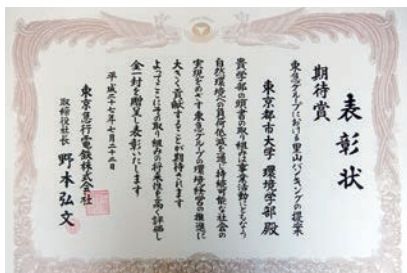 表彰状
期待賞
東急グループにおける里山バンキングの提案
東京都市大学 環境学部 殿
貴学部の頭書の取り組みは事業活動にともなう
自然環境への負荷低減を通じ持続可能な社会の
実現をめざす東急グループの環境経営の推進に
大きく貢献することが期待されます
よってここにその取り組みの将来性を高く評価し
金一封を贈呈し表彰いたします
平成二十七年七月二十二日
東京急行電鉄株式会社
取締役社長 野本弘文